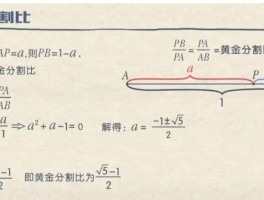 割比
AP=a,则PB=1-a,
金分割比
PB/PA = PA/AB =黄金分割
PA/AB
a
A
P
1
a/1 ⇒ a²+a-1=0 解得: a = (-1±√5)/2
-1/2 即黄金分割比为 (√5-1)/2